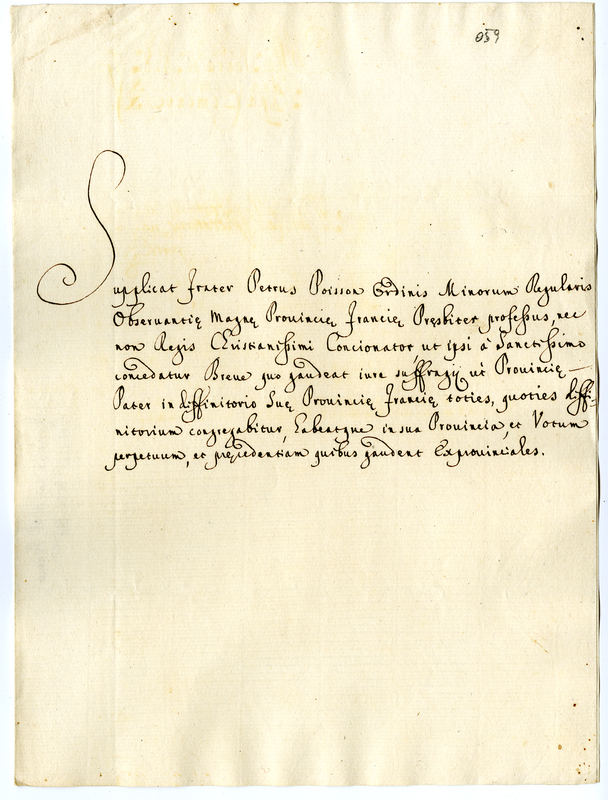 059
Supplicat frater Petrus Poisson Ordinis Minorum Regularis
Obseruantię Magnę Prouincię Francię Presbiter professus, nec
non Regis Christianissimi Concionator, ut ipsi à Sanctissimo
concedatur Breue quo gaudeat iure suffragij ut Prouincię
Pater in diffinitorio suę Prouincię Francię toties, quoties diffi-
nitorium congregabitur, habeatque in sua Prouincia, et Votum
perpetuum, et pręcedentiam quibus gaudent Exprouinciales.